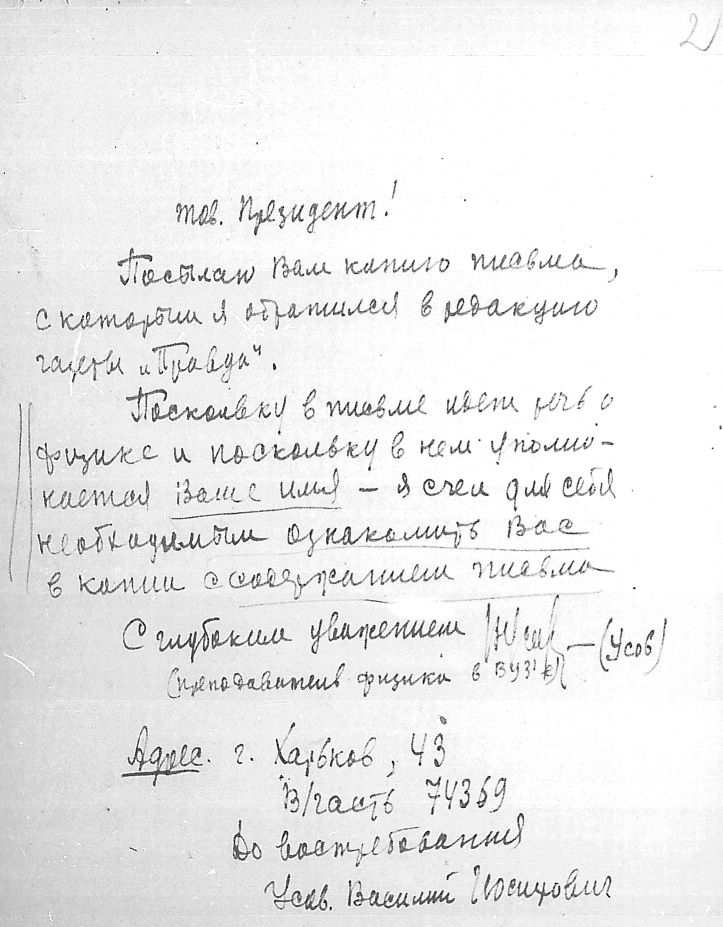 2
тов. Президент!
Посылаю Вам копию письма,
с которым я обратился в редакцию
газеты „Правда“.
Поскольку в письме идет речь о
физике и поскольку в нем упоми-
нается Ваше имя – я счел для себя
необходимым ознакомить Вас
в копии с содержанием письма
С глубоким уважением — (Усов)
(преподаватель физики в ВУЗ'е)
Адрес. г. Харьков, 43
В/часть 74369
До востребования
Усов. Василий Иосифович